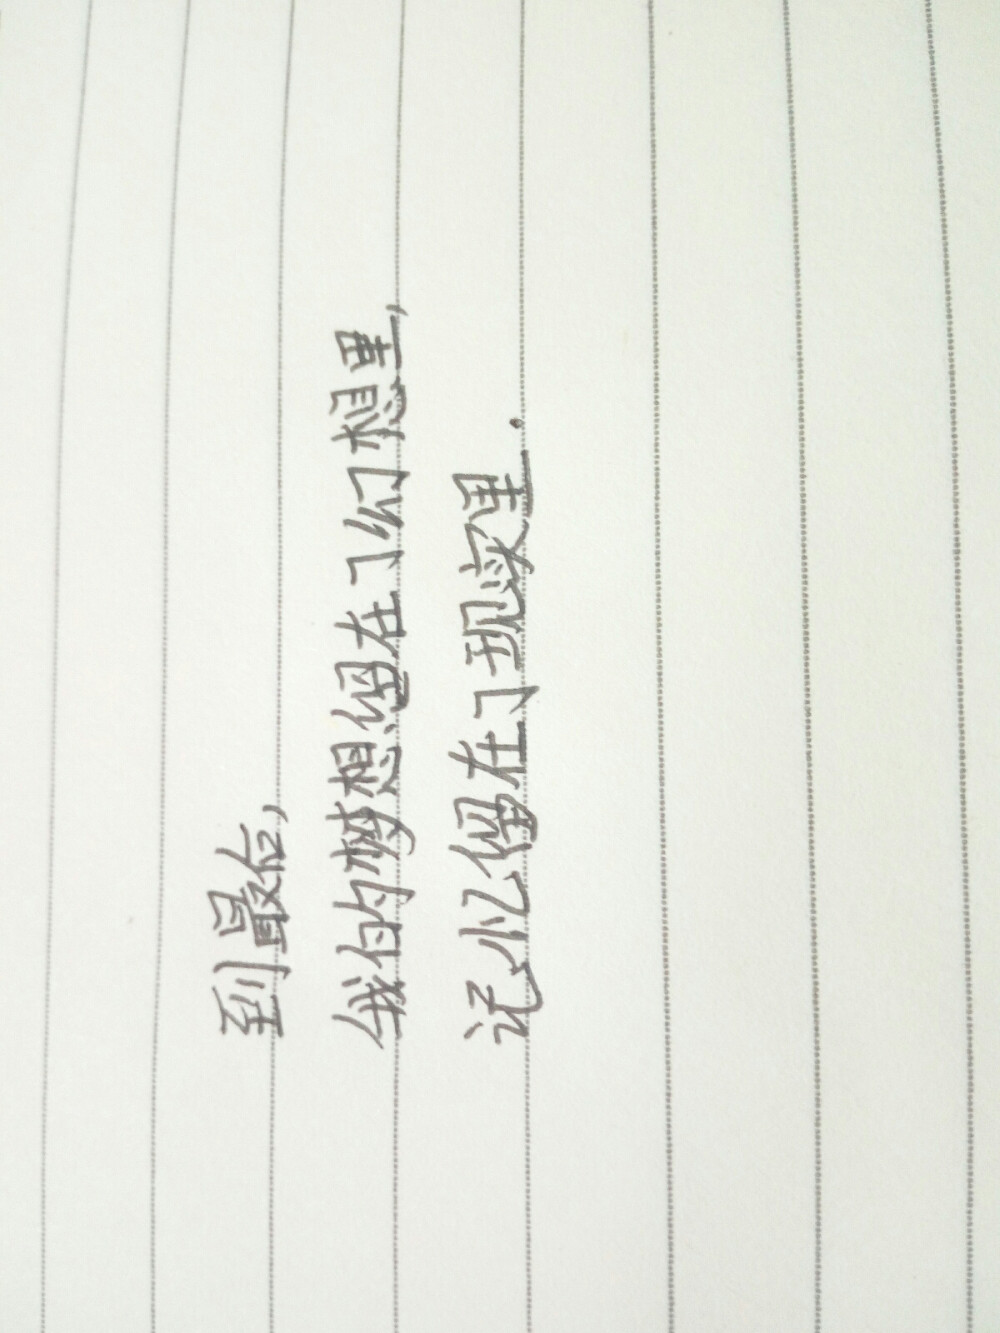 到最后,
我的梦想留在了幻想里,
记忆留在了现实里.